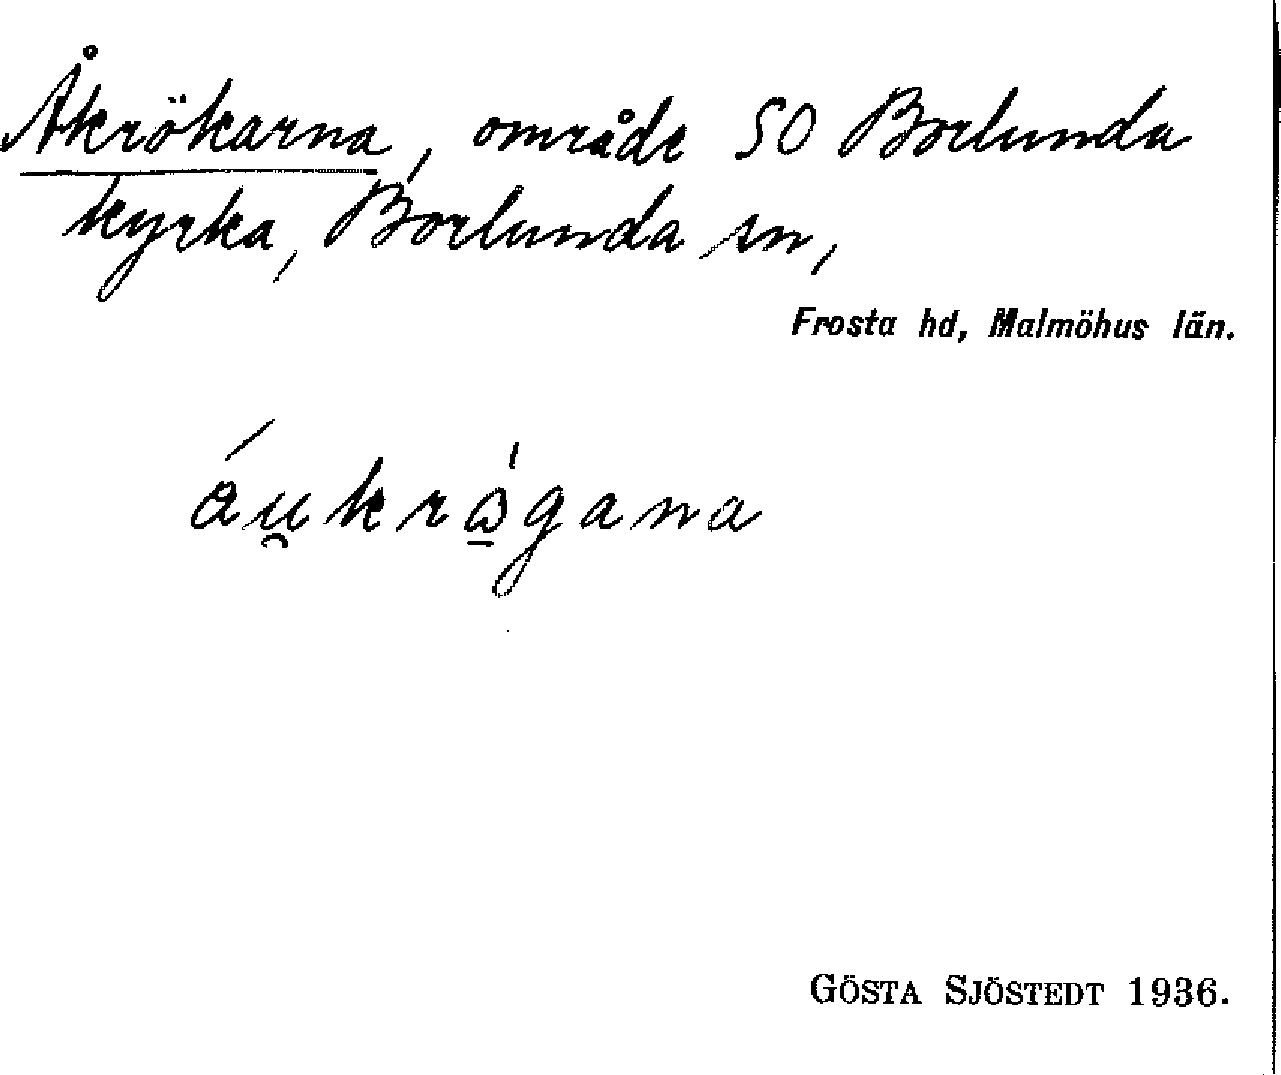 Åkrökarna, område SO Borlunda
kyrka, Borlunda sn,
Frosta hd, Malmöhus län.
áu̯krὼ̲gana
GÖSTA SJÖSTEDT 1936.